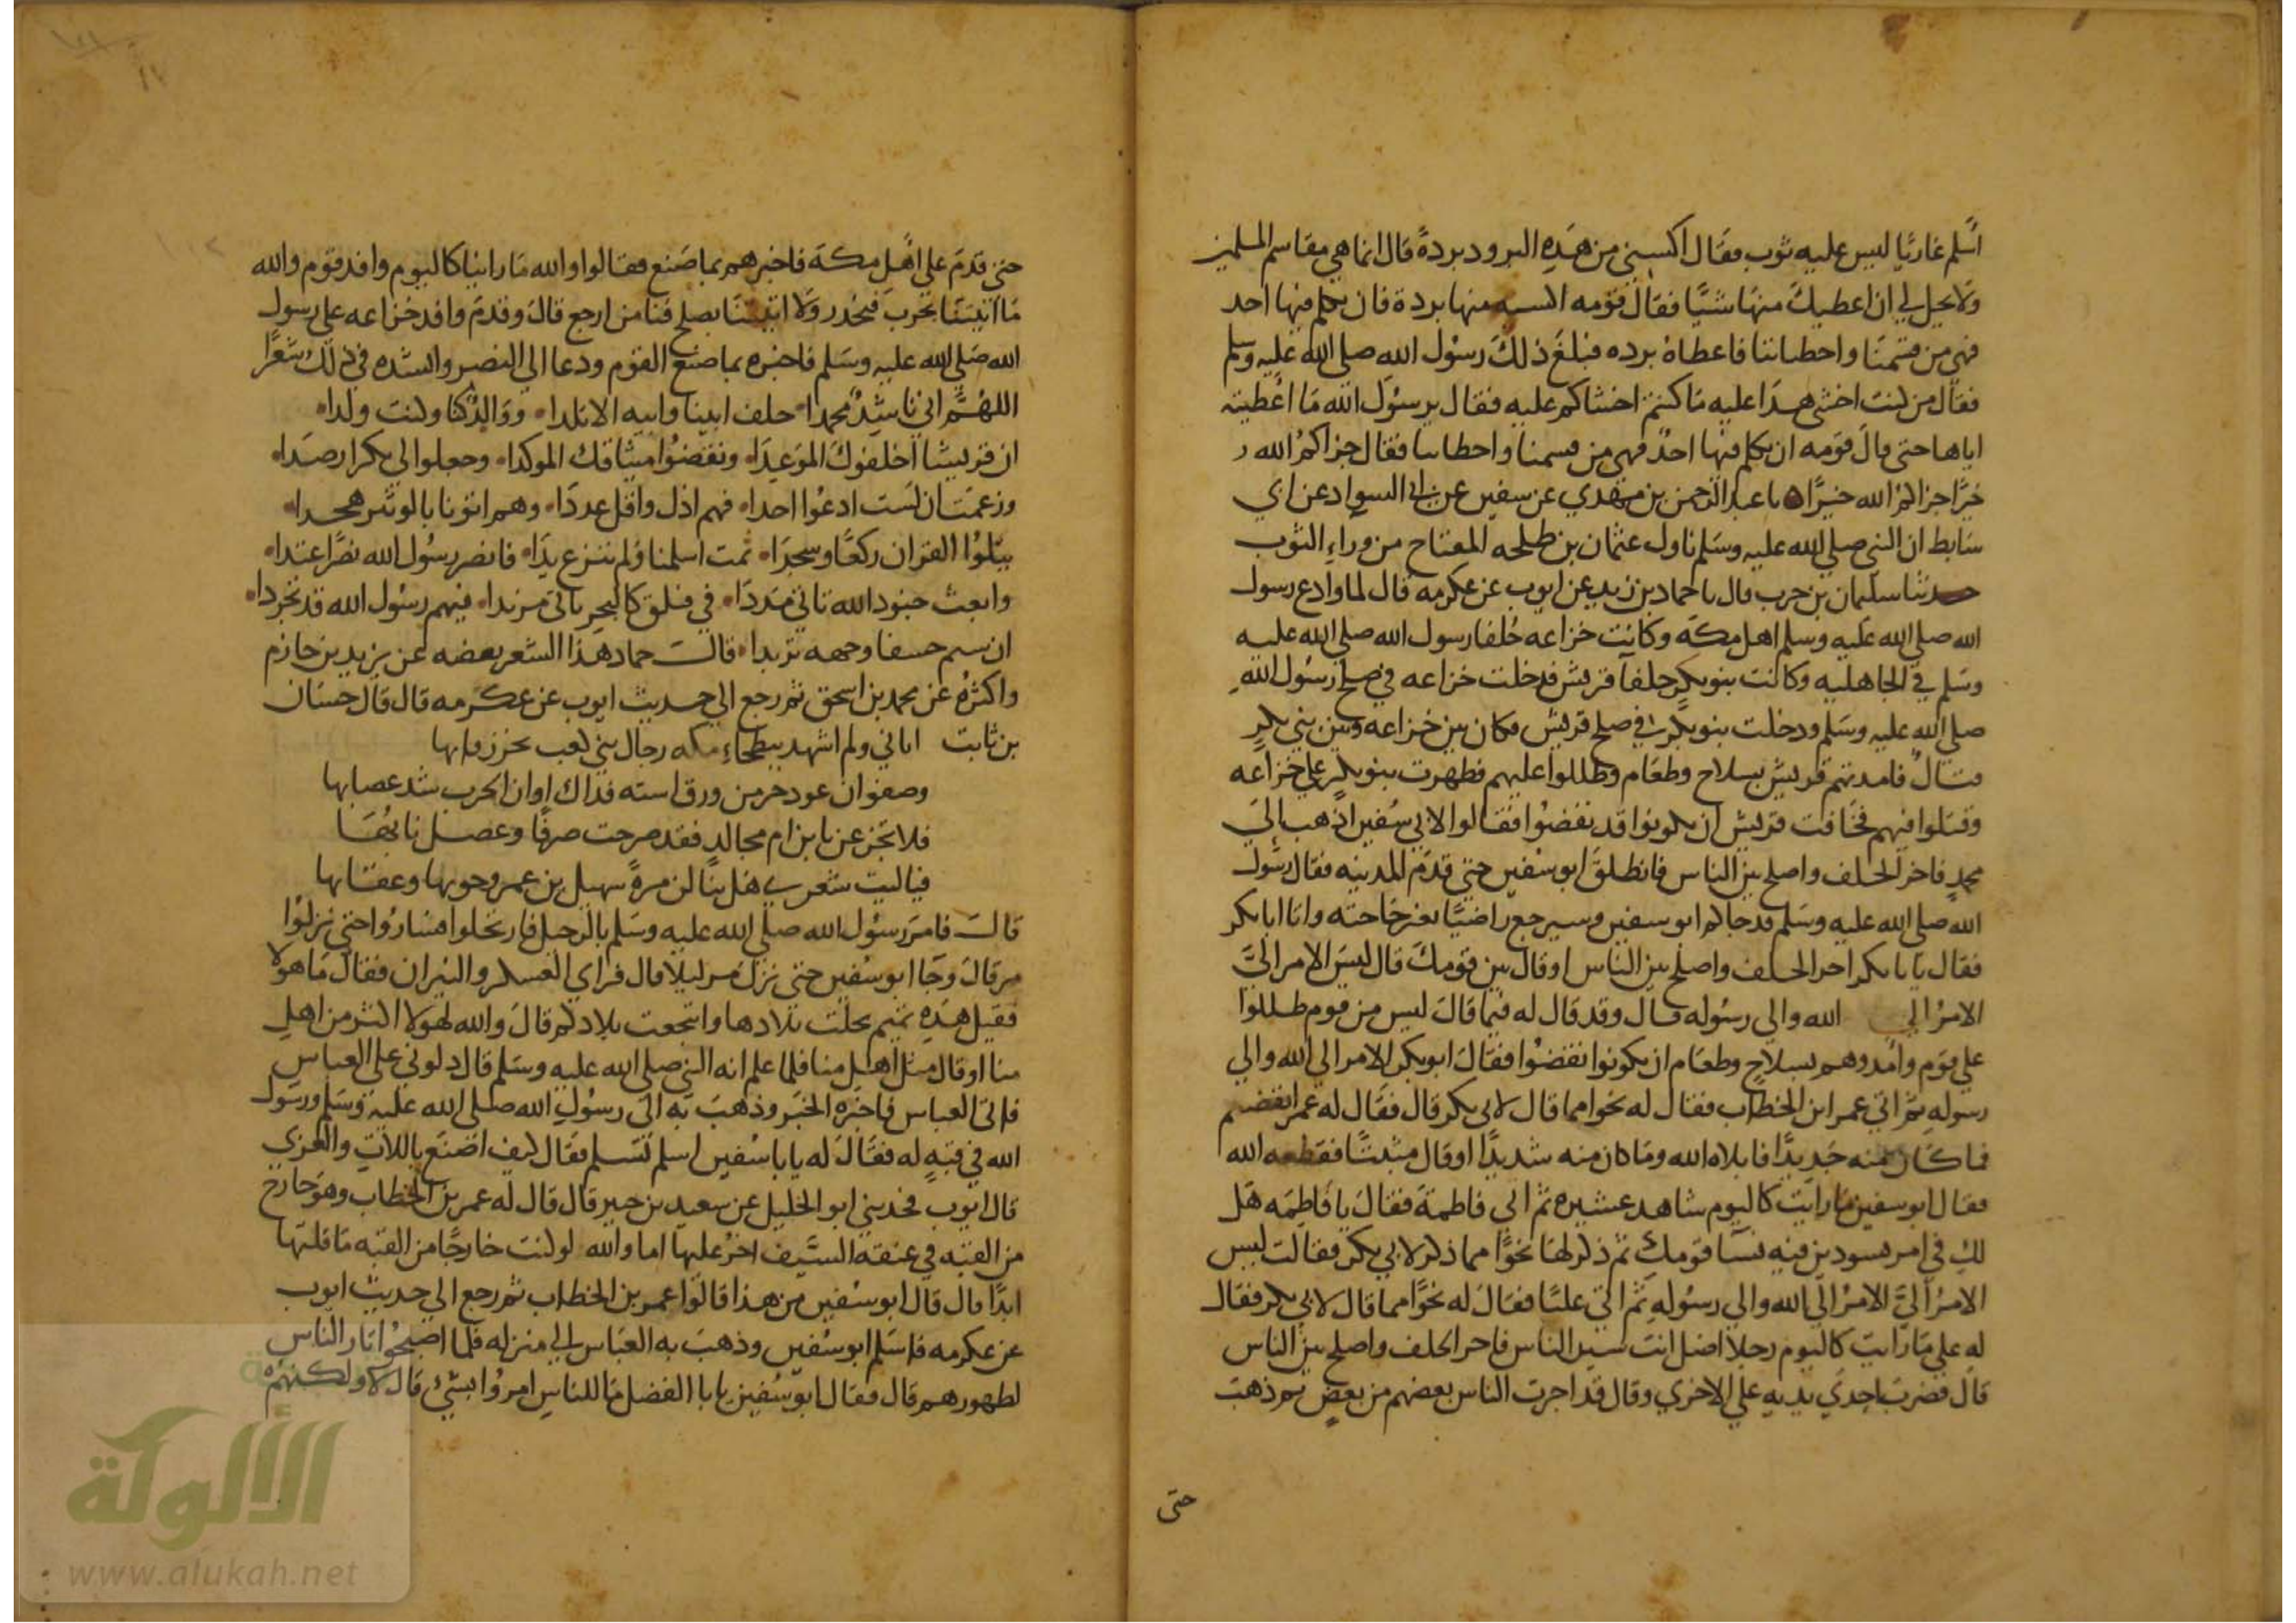 أسلم عاريا ليس عليه ثوب فقال اكسني من هذه البرود بردة قال انما هي مقاسم المسلمين
ولا يحل لي ان اعطيك منها شيا فقال قومه اكسه منها بردة فان تكلم فيها احد
فهي من قسمنا واعطياتنا فاعطاه برده فبلغ ذلك رسول الله صلى الله عليه وسلم
فقال من كنت اخشى هذا عليه ما كنتم اخشاكم عليه فقال يرسول الله ما اعطيته
اياها حتى قال قومه ان تكلم فيها احد فهي من قسمنا واعطياتنا فقال جزاكم الله
خيرا جزاكم الله خيرا نا عبد الرحمن بن مهدي عن سفين عن ابي السواد عن ابي
سابط ان النبي صلي الله عليه وسلم ناول عثمان بن طلحه المفتاح من وراء الثوب
حدثنا سليمان بن حرب قال نا حماد بن زيد عن ايوب عن عكرمه قال لما وادع رسول
الله صلي الله عليه وسلم اهل مكه وكانت خزاعه حلفا رسول الله صلي الله عليه
وسلم في الجاهليه وكانت بنو بكر حلفا قريش فدخلت خزاعه في صلح رسول الله
صلي الله عليه وسلم ودخلت بنو بكر في صلح قريش فكان بين خزاعه وبين بني بكر
قتال فامدتهم قريش بسلاح وطعام وظللوا عليهم فظهرت بنو بكر علي خزاعه
وقتلوا فيهم فخافت قريش ان يكونوا قد نقضوا فقالوا لابي سفين اذهب الي
محمد فاجر الحلف واصلح بين الناس فانطلق ابو سفين حتي قدم المدينه فقال رسول
الله صلي الله عليه وسلم قد جاكم ابو سفين وسيرجع راضيا بغير حاجته واتا ابا بكر
فقال يا با بكر اجر الحلف واصلح بين الناس او قال بين قومك قال ليس الامر الي
الامر الي الله والي رسوله قال وقد قال له فيما قال ليس من قوم ظللوا
علي قوم وامدوهم بسلاح وطعام ان يكونوا نقضوا فقال ابو بكر الامر الي الله والي
رسوله ثم اتي عمر ابن الخطاب فقال له نحوا مما قال لابي بكر قال فقال له عمر انقضتم
فما كان منه جديدا فابلاه الله وما كان منه شديدا او قال مثبتا فقطعه الله
فقال ابو سفين ما رايت كاليوم شاهد عشيره ثم اتي فاطمة فقال يا فاطمه هل
لك في امر تسودين فيه نسا قومك ثم ذكر لها نحوا مما ذكر لابي بكر فقالت ليس
الامر الي الامر الي الله والي رسوله ثم اتي عليا فقال له نحوا مما قال لابي بكر فقال
له علي ما رايت كاليوم رجلا اضل انت سيد الناس فاجر الحلف واصلح بين الناس
قال فضرب احدي يديه علي الاخري وقال قد اجرت الناس بعضهم من بعض ثم ذهب
حتى
حتي قدم علي اهل مكة فاخبرهم بما صنع فقالوا والله ما راينا كاليوم وافد قوم والله
ما اتيتنا بحرب فنحذر ولا اتيتنا بصلح فنامن ارجع قال وقدم وافد خزاعه علي رسول
الله صلي الله عليه وسلم فاخبره بما صنع القوم ودعا الي النصر وانشده في ذلك شعرا
اللهم اني ناشد محمدا حلف ابينا وابيه الاتلدا ووالدا كنا وكنت ولدا
ان قريشا اخلفوك الموعدا ونقضوا ميثاقك الموكدا وجعلوا لي بكدا رصدا
وزعمت ان لست ادعوا احدا فهم اذل واقل عددا وهم اتونا بالوتير هجدا
يتلوا القران ركعا وسجدا ثمت اسلمنا ولم ننزع يدا فانصر رسول الله نصرا عتدا
وابعث جنود الله تاتي مددا في فيلق كالبحر ياتي مزبدا فيهم رسول الله قد تجردا
ان سيم خسفا وجهه تربدا قال حماد هذا الشعر بعضه عن يزيد بن حازم
واكثره عن محمد بن اسحق ثم رجع الي حديث ايوب عن عكرمه قال قال حسان
بن ثابت اتاني ولم اشهد ببطحاء مكه رجال بني كعب تحز رقابها
وصفوان عود حز من ورق استه فذاك اوان الحرب شد عصابها
فلا تجزعن يا بن ام مجالد فقد صرحت صرفا وعصل نابها
فيا ليت شعري هل ينالن مرة سهيل بن عمرو حوبها وعقابها
قال فامر رسول الله صلي الله عليه وسلم بالرحيل فارتحلوا فساروا حتي نزلوا
مر قال وجا ابو سفين حتي نزل مر ليلا قال فراي العسكر والنيران فقال ما هولا
فقيل هذه تميم محلت بلادها وانتجعت بلادكم قال والله لهولا اكثر من اهل
منا او قال مثل اهل منا فلما علم انه النبي صلي الله عليه وسلم قال دلوني علي العباس
فاتي العباس فاخبره الخبر وذهب به الي رسول الله صلي الله عليه وسلم ورسول
الله في قبه له فقال له يا با سفين اسلم تسلم فقال كيف اصنع باللات والعزي
قال ايوب فحدثني ابو الخليل عن سعيد بن جبير قال قال له عمر بن الخطاب وهو خارج
من القبه في عنقه السيف اخر عليها اما والله لو كنت خارجا من القبه ما قلتها
ابدا قال قال ابو سفين من هذا قالوا عمر بن الخطاب ثم رجع الي حديث ايوب
عن عكرمه فاسلم ابو سفين وذهب به العباس الي منزله فلما اصبحوا ثار الناس
لطهورهم قال فقال ابو سفين يا با الفضل ما للناس امروا بشيء قال لا ولكنهم
الألوكة
www.alukah.net